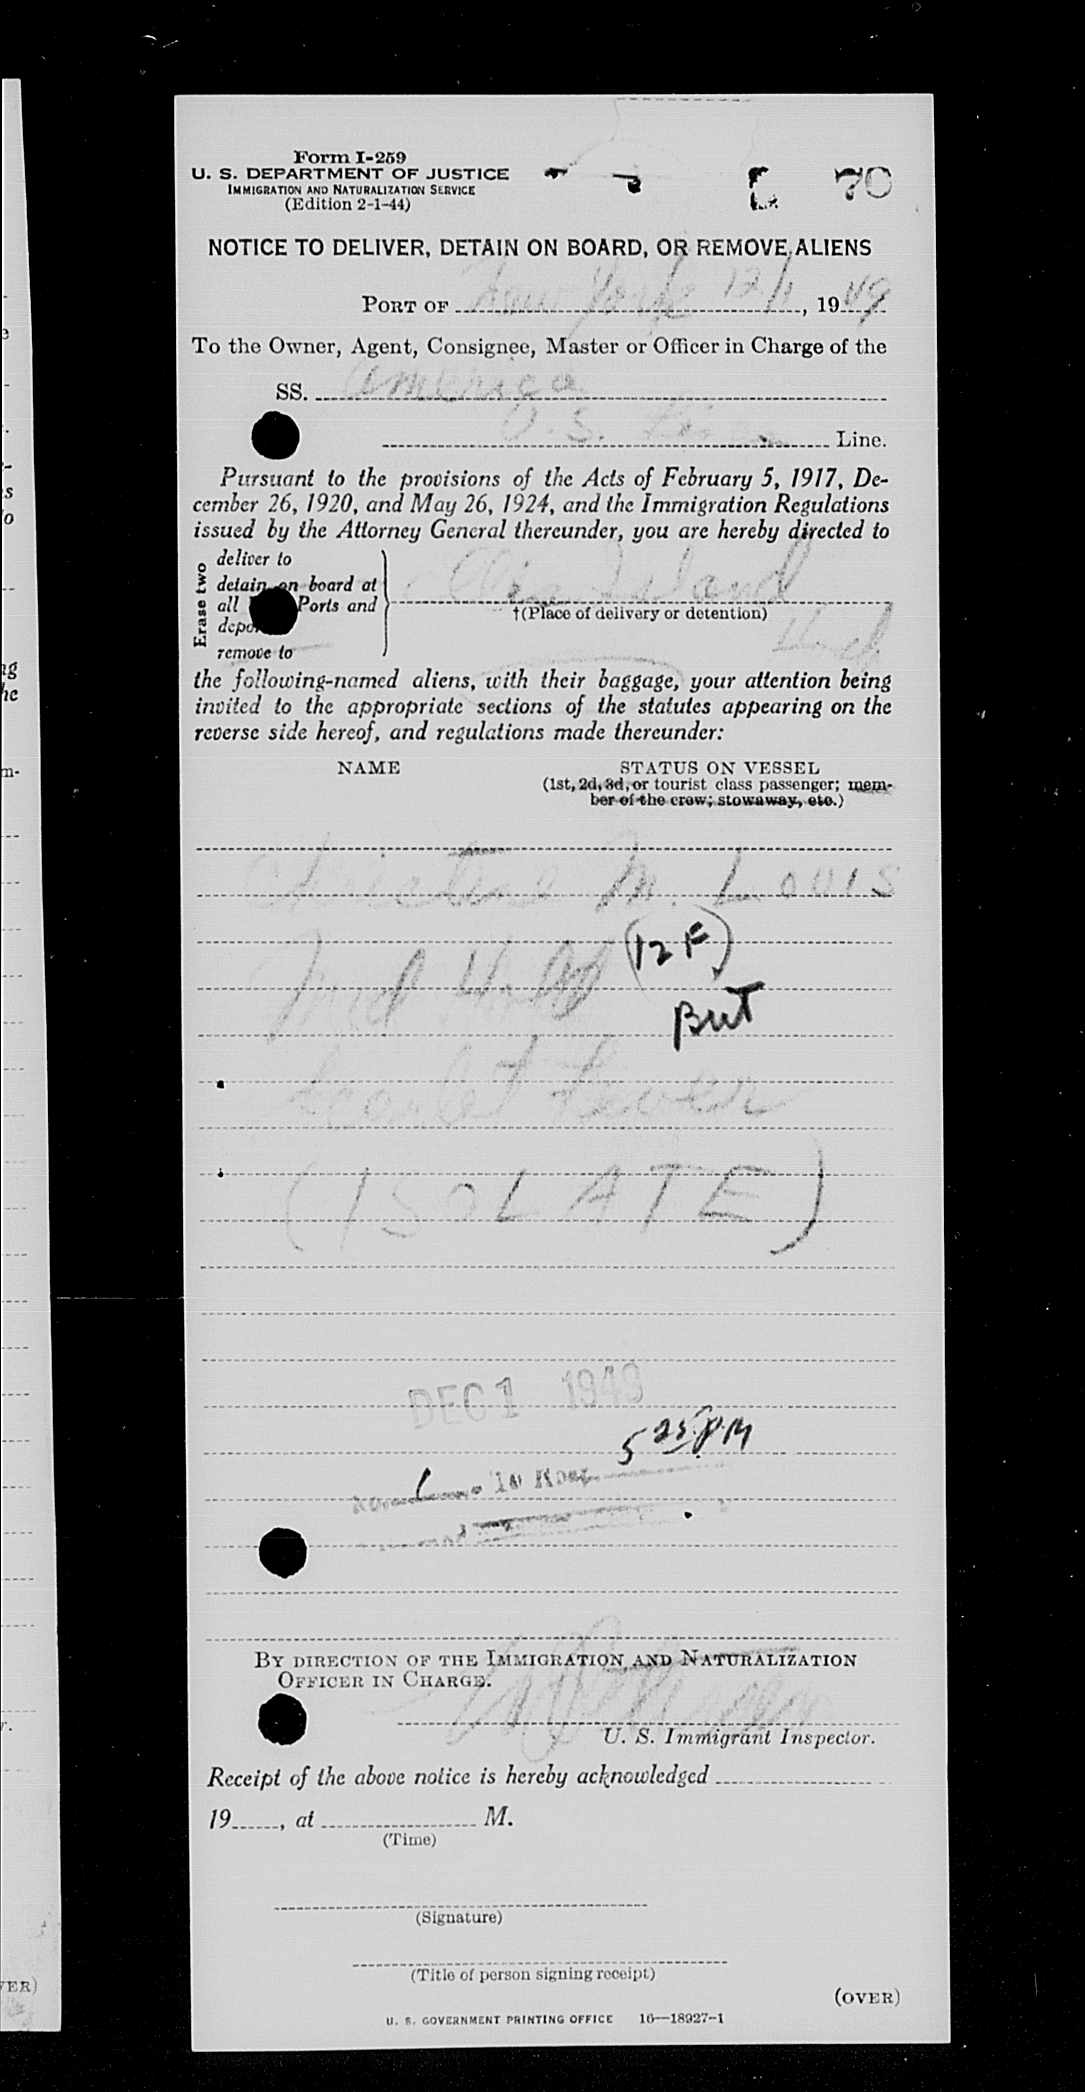 Form I-259
U. S. DEPARTMENT OF JUSTICE
IMMIGRATION AND NATURALIZATION SERVICE
(Edition 2-1-44)
70
NOTICE TO DELIVER, DETAIN ON BOARD, OR REMOVE ALIENS
PORT OF New York 12/1, 1949
To the Owner, Agent, Consignee, Master or Officer in Charge of the
SS. America
U.S. Lines Line.
Pursuant to the provisions of the Acts of February 5, 1917, De-
cember 26, 1920, and May 26, 1924, and the Immigration Regulations
issued by the Attorney General thereunder, you are hereby directed to
Erase two
deliver to
detain on board at
all Ports and
remove to
Ellis Island
†(Place of delivery or detention)
the following-named aliens, with their baggage, your attention being
invited to the appropriate sections of the statutes appearing on the
reverse side hereof, and regulations made thereunder:
NAME STATUS ON VESSEL
(1st, 2d, 3d, or tourist class passenger; mem-
ber of the crew; stowaway, etc.)
Christine M. Louis
(12 F)
But
Scarlet Fever
(ISOLATE)
DEC 1 1949
5 25 P.M
BY DIRECTION OF THE IMMIGRATION AND NATURALIZATION
OFFICER IN CHARGE.
U. S. Immigrant Inspector.
Receipt of the above notice is hereby acknowledged
19, at M.
(Time)
(Signature)
(Title of person signing receipt)
(OVER)
U. S. GOVERNMENT PRINTING OFFICE 16—18927-1